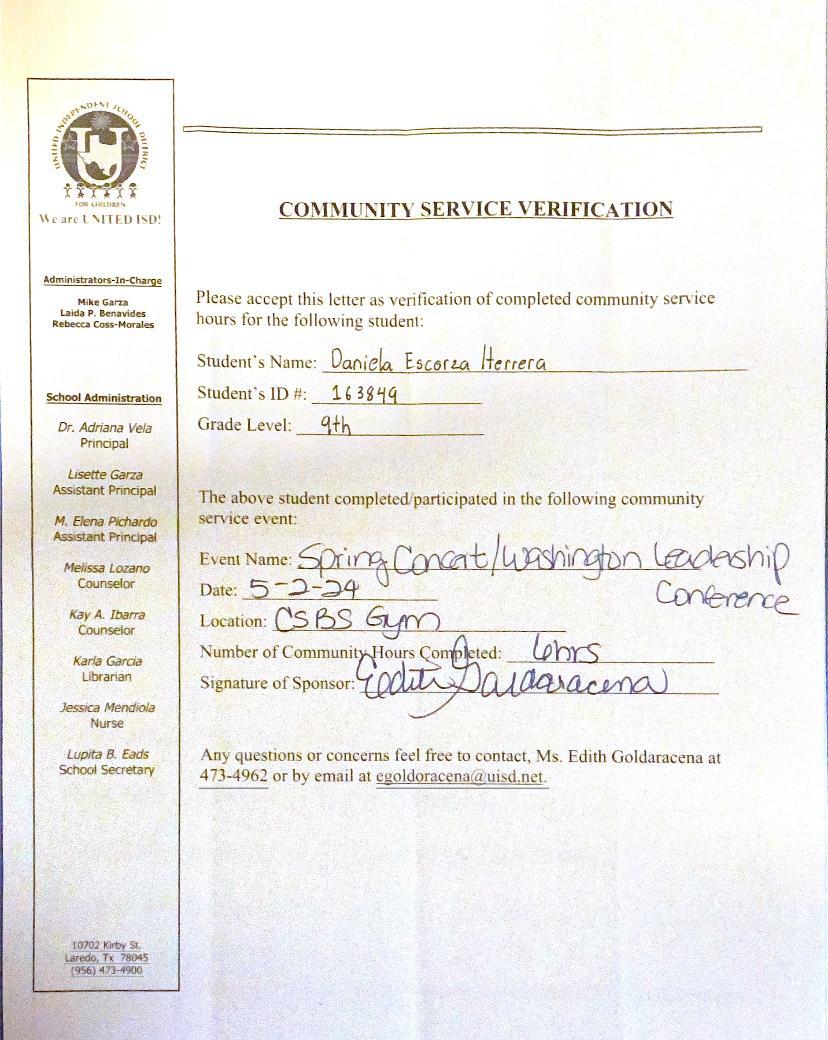 UNITED INDEPENDENT SCHOOL DISTRICT
U
FOR CHILDREN
We are UNITED ISD!
Administrators-In-Charge
Mike Garza
Laida P. Benavides
Rebecca Coss-Morales
School Administration
Dr. Adriana Vela
Principal
Lisette Garza
Assistant Principal
M. Elena Pichardo
Assistant Principal
Melissa Lozano
Counselor
Kay A. Ibarra
Counselor
Karla Garcia
Librarian
Jessica Mendiola
Nurse
Lupita B. Eads
School Secretary
10702 Kirby St.
Laredo, Tx 78045
(956) 473-4900
COMMUNITY SERVICE VERIFICATION
Please accept this letter as verification of completed community service
hours for the following student:
Student's Name: Daniela Escorza Herrera
Student's ID #: 163849
Grade Level: 9th
The above student completed/participated in the following community
service event:
Event Name: Spring Concert/Washington Leadership
Conference
Date: 5-2-24
Location: CSBS Gym
Number of Community Hours Completed: 6hrs
Signature of Sponsor: Edith Goldaracena
Any questions or concerns feel free to contact, Ms. Edith Goldaracena at
473-4962 or by email at egoldoracena@uisd.net.